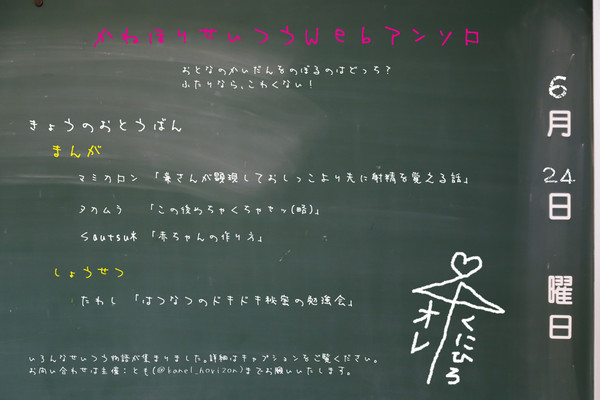 かねほりせいつうWebアンソロ
おとなのかいだんをのぼるのはどっち?
ふたりなら、こわくない!
きょうのおとうばん
まんが
マミカロン 「兼さんが顕現しておしっこより先に射精を覚える話」
タカムラ 「この後めちゃくちゃセッ(略)」
「赤ちゃんの作り方」
しょうせつ
たわし 「はつなつのドキドキ秘密の勉強会」
いろんなせいつう物語が集まりました。詳細はキャプションをご覧ください。
お問い合わせは主催:とも(@kanel_horizon)までお願いいたします。
オレ
くにひろ
6
月
24
日
曜
日